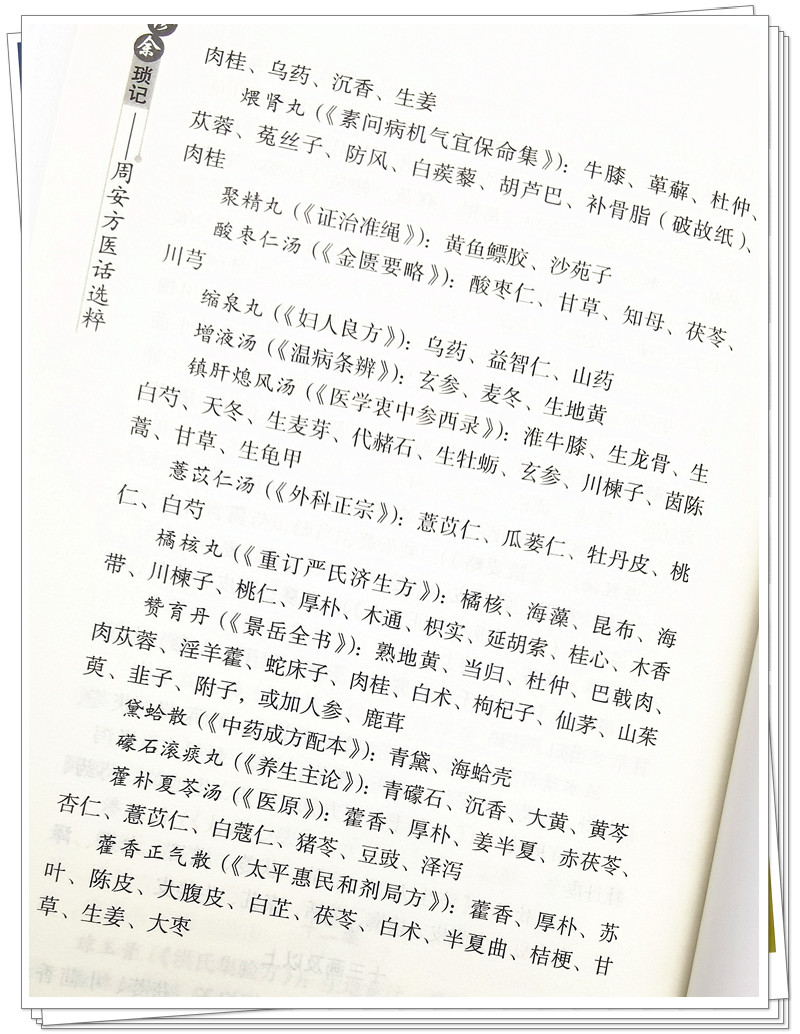 余
琐记
——周安方医话选粹
肉桂、乌药、沉香、生姜
煨肾丸（《素问病机气宜保命集》）：牛膝、萆薢、杜仲、
苁蓉、菟丝子、防风、白蒺藜、胡芦巴、补骨脂（破故纸）、
肉桂
聚精丸（《证治准绳》）：黄鱼鳔胶、沙苑子
酸枣仁汤（《金匮要略》）：酸枣仁、甘草、知母、茯苓、
川芎
缩泉丸（《妇人良方》）：乌药、益智仁、山药
增液汤（《温病条辨》）：玄参、麦冬、生地黄
镇肝熄风汤（《医学衷中参西录》）：淮牛膝、生龙骨、生
白芍、天冬、生麦芽、代赭石、生牡蛎、玄参、川楝子、茵陈
蒿、甘草、生龟甲
薏苡仁汤（《外科正宗》）：薏苡仁、瓜蒌仁、牡丹皮、桃
仁、白芍
橘核丸（《重订严氏济生方》）：橘核、海藻、昆布、海
带、川楝子、桃仁、厚朴、木通、枳实、延胡索、桂心、木香
赞育丹（《景岳全书》）：熟地黄、当归、杜仲、巴戟肉、
肉苁蓉、淫羊藿、蛇床子、肉桂、白术、枸杞子、仙茅、山茱
萸、韭子、附子，或加人参、鹿茸
黛蛤散（《中药成方配本》）：青黛、海蛤壳
礞石滚痰丸（《养生主论》）：青礞石、沉香、大黄、黄芩
藿朴夏苓汤（《医原》）：藿香、厚朴、姜半夏、赤茯苓、
杏仁、薏苡仁、白蔻仁、猪苓、豆豉、泽泻
藿香正气散（《太平惠民和剂局方》）：藿香、厚朴、苏
叶、陈皮、大腹皮、白芷、茯苓、白术、半夏曲、桔梗、甘
草、生姜、大枣